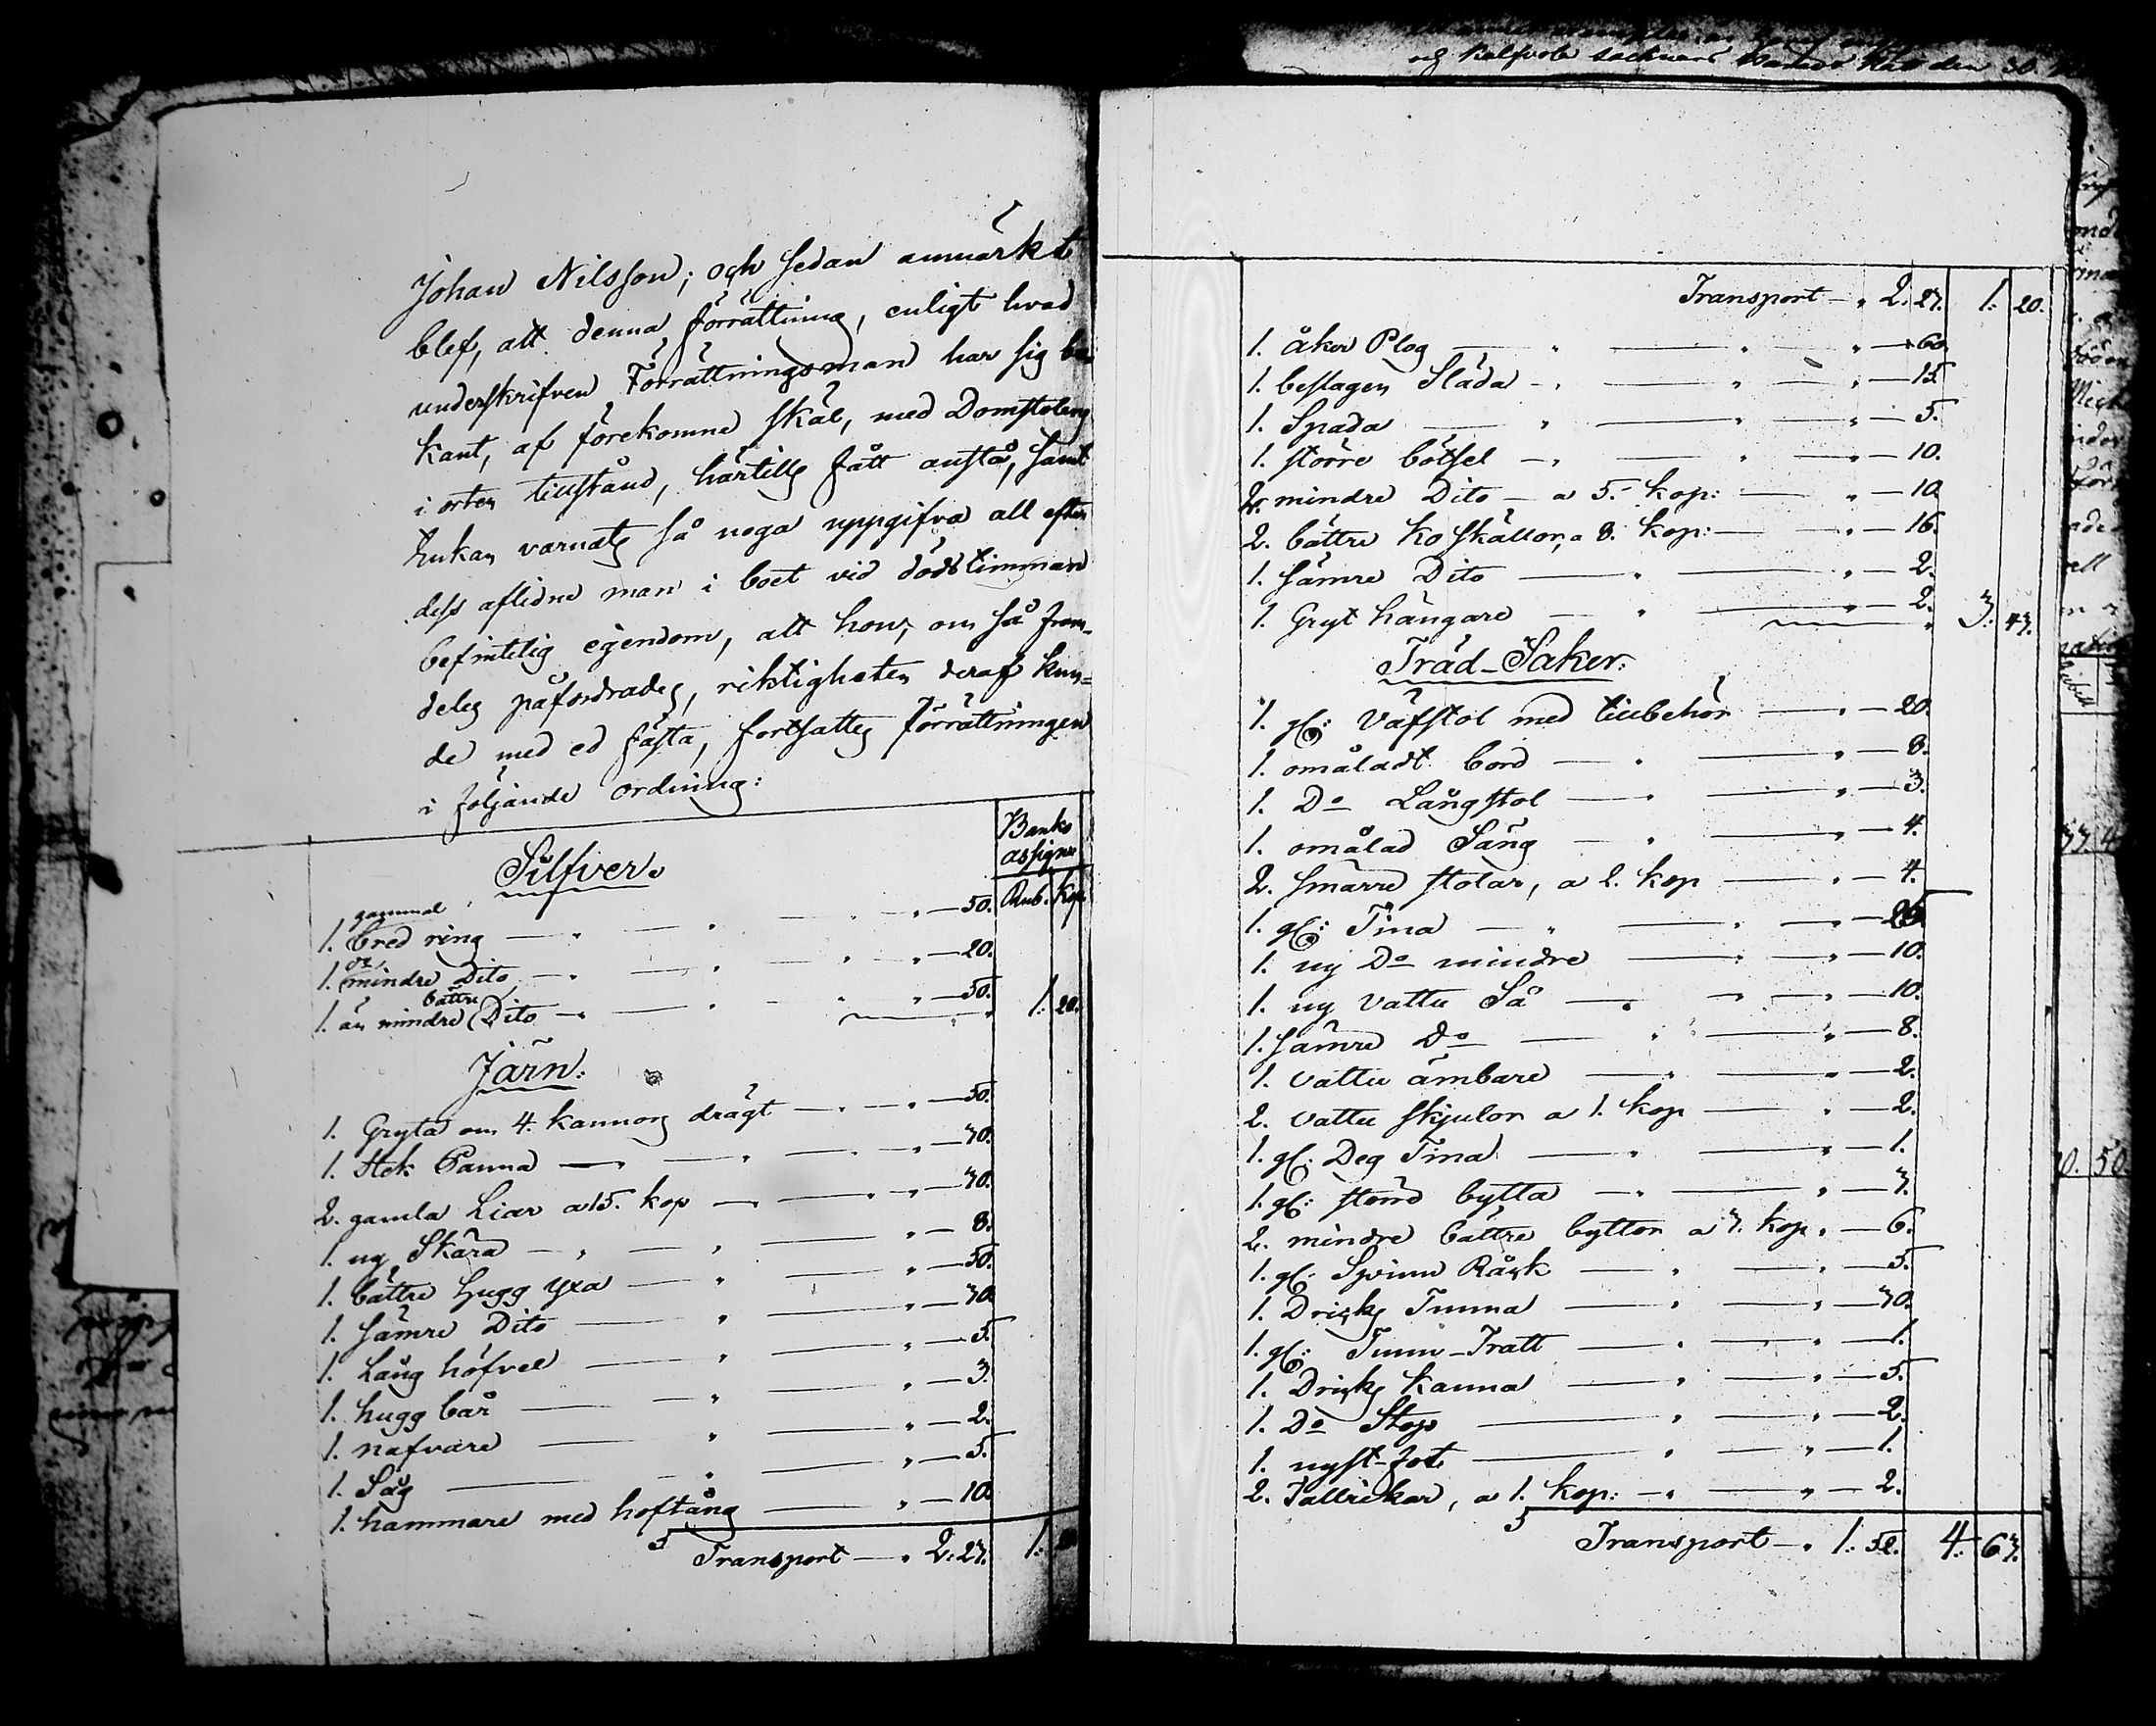 Johan Nilsson; och sedan anmärkt
blef, att denna förrättning, enligt hvad
underskrifven Förrättningsman har sig be-
kant, af förekomne skäl, med Domstolens
i orten tillstånd, härtills fått anstå, samt
Enkan varnats så noga uppgifva all efter
dess aflidne man i boet vid dödstimman
befintelig egendom, att hon, om så from-
deles påfordrades, riktigheten deraf kun-
de med ed fästa, fortsattes förrättningen
i följande ordning:
Banko
assigne
Silfver.
Rub. Kop.
1. gammal bred ring — 50.
1. do mindre Dito — 20.
1. än mindre bättre Dito — 50. 1. 20.
Järn.
1. Gryta om 4. kannors drägt — 50.
1. Stek Panna — 30.
2. gamla Liar a 15. kop — 30.
1. ny Skära — 8.
1. bättre hugg yxa — 50.
1. sämre Dito — 30.
1. Lång höfvel — 5.
1. hugg bår — 3.
1. nafvare — 2.
1. Såg — 5.
1. hammare med hoftång — 10.
Transport — 2: 23. 1: 20
och Kalfvola socknars den 30.
Transport — 2. 23. 1. 20.
1. åker Plog — 60
1. beslagen Släda — 15
1. Spada — 5.
1. större bötsel — 10.
2. mindre Dito — a 5. kop: — 10.
2. bättre ko skällor, a 8. kop: — 16.
1. sämre Dito — 2.
1. Gryt hängare — 2. 3. 43.
Träd-Saker:
1. gl: Väfstol med tillbehör — 20.
1. omåladt bord — 8.
1. Do Långstol — 3.
1. omålad Säng — 4.
2. smärre stolar, a 2. kop — 4.
1. gl: Tina — 25
1. ny Do mindre — 10.
1. ny vattu Så — 10.
1. sämre Do — 8.
1. vattu ämbare — 2.
2. vattu skjulor a 1. kop — 2.
1. gl. Deg Tina — 1.
1. gl: stönd bytta — 3.
2. mindre bättre byttor a 3. kop. — 6.
1. gl: Spinn Råck — 5.
1. Dricks Tunna — 30.
1. gl: Tunn-Tratt — 1.
1. Dricks kanna — 5.
1. Do Stop — 2.
1. nyst-fot — 1.
2. Tallrikar, a 1. kop: — 2.
Transport — 1. 52. 4. 63.